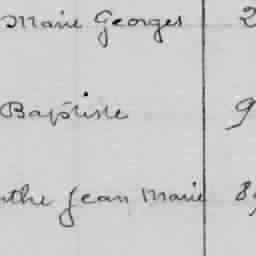 Marie Georges 2
Baptiste 9
Jean Marie 8